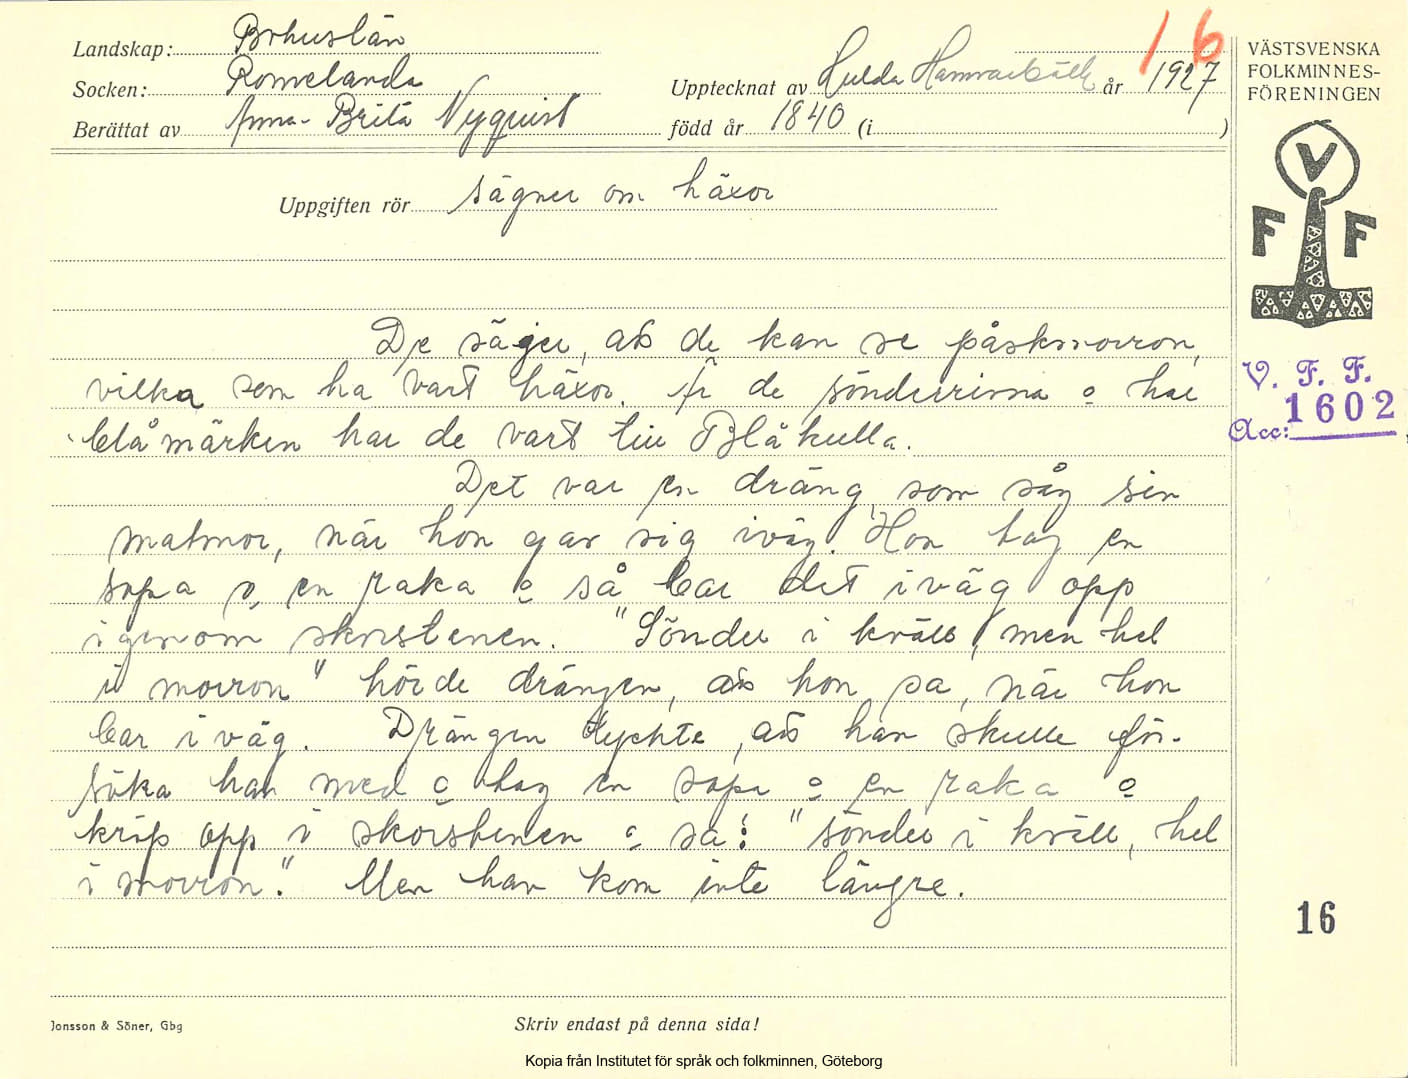 16
Landskap: Bohuslän
Socken: Romelanda
Upptecknat av Hulda Hammarbäck år 1927
Berättat av Anna-Brita Nyquist
född år 1840 (i )
VÄSTSVENSKA
FOLKMINNES-
FÖRENINGEN
V
F F
Uppgiften rör sägner om häxor
De säger, att de kan se påskmorron,
vilka som ha vart häxor. Är de sönderrivna o har
blåmärken har de vart till Blåkulla.
Det var en dräng, som såg sin
matmor, när hon gav sig iväg. Hon tog en
sopa o en raka o så bar det iväg opp
igenom skorstenen. "Sönder i kväll, men hel
i morron" hörde drängen, att hon sa, när hon
bar iväg. Drängen tyckte, att han skulle för-
söka han med o tog en sopa o en raka o
krôp opp i skorstenen o sa: "sönder i kväll, hel
i morron." Men han kom inte längre.
V. F. F.
Acc: 1602
16
Jonsson & Söner, Gbg
Skriv endast på denna sida!
Kopia från Institutet för språk och folkminnen, Göteborg